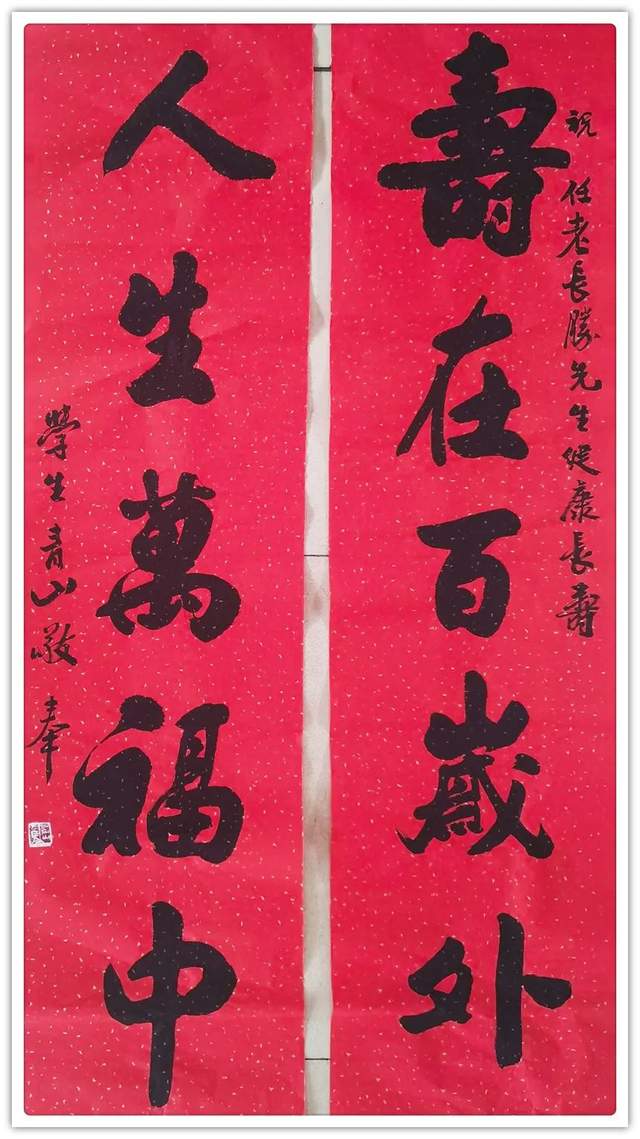 祝任老長勝先生健康長壽
壽在百歲外
人生萬福中
學生青山敬奉